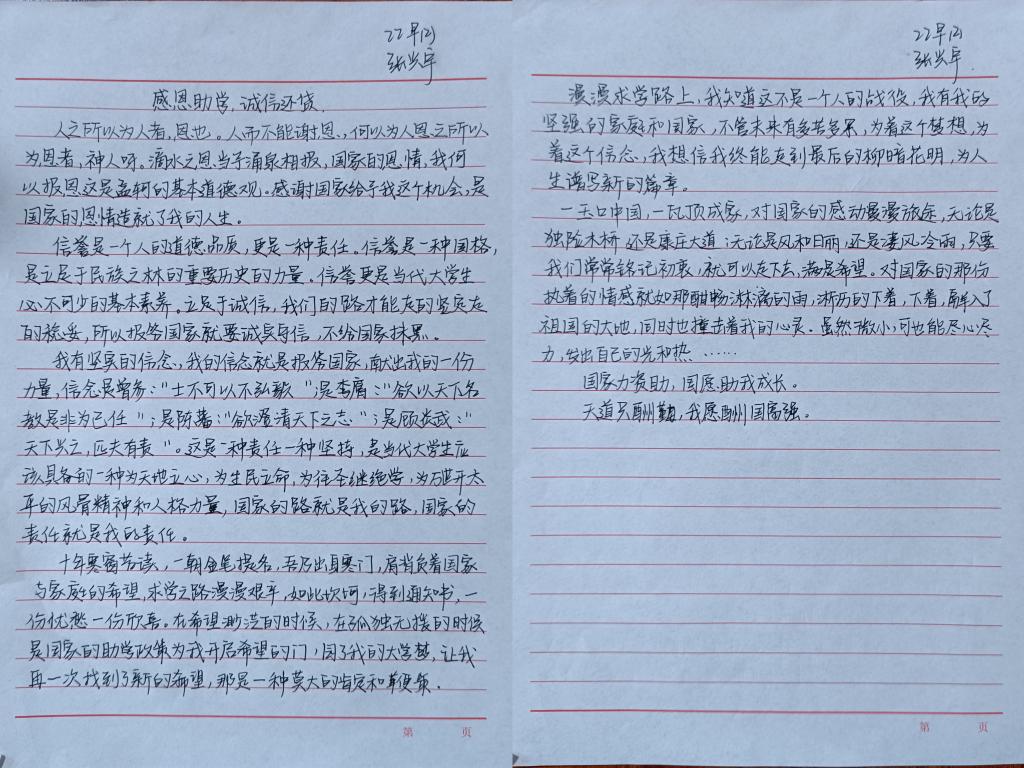 22早(2)
张兴宇
感恩助学,诚信还贷.
人之所以为人者,恩也。人而不能谢恩,何以为人恩之所以
为恩者,神人呀。滴水之恩当于涌泉相报,国家的恩情,我何
以报恩这是孟轲的基本道德观。感谢国家给予我这个机会,是
国家的恩情造就了我的人生。
信誉是一个人的道德品质,更是一种责任。信誉是一种国格,
是立足于民族之林的重要历史的力量。信誉更是当代大学生
必不可少的基本素养。立足于诚信,我们的路才能走的坚实走
的稳妥,所以报答国家就要诚实守信,不给国家抹黑。
我有坚实的信念、我的信念就是报答国家,献出我的一份
力量,信念是曾参:"士不可以不弘毅";是李膺:"欲以天下名
教是非为己任";是陈蕃:"欲澄清天下之志";是顾炎武:"
天下兴亡,匹夫有责"。这是一种责任一种坚持,是当代大学生应
该具备的一种为天地立心,为生民立命,为往圣继绝学,为万世开太
平的风骨精神和人格力量,国家的路就是我的路,国家的
责任就是我的责任。
十年寒窗苦读,一朝金笔提名,吾乃出身寒门,肩背负着国家
与家庭的希望,求学之路漫漫艰辛,如此坎坷,得到通知书,一
份忧愁一份欣喜。在希望渺茫的时候,在孤独无援的时候
是国家的助学政策为我开启希望的门,圆了我的大学梦,让我
再一次找到了新的希望,那是一种莫大的肯定和鞭策.
第 页
22早(2)
张兴宇
漫漫求学路上,我知道这不是一个人的战役,我有我的
坚强的家庭和国家,不管未来有多苦多累,为着这个梦想,为
着这个信念,我想信我终能走到最后的柳暗花明,为人
生谱写新的篇章。
一玉口中国,一瓦顶成家,对国家的感动漫漫旅途,无论是
独险木桥,还是康庄大道;无论是风和日丽,还是凄风冷雨,只要
我们常常铭记初衷,就可以走下去,满是希望。对国家的那份
执着的情感就如那酣畅淋漓的雨,淅沥的下着,下着,融入了
祖国的大地,同时也撞击着我的心灵。虽然微小,可也能尽心尽
力,发出自己的光和热……
国家力资助,国愿助我成长。
天道只酬勤,我愿酬国富强。
第 页